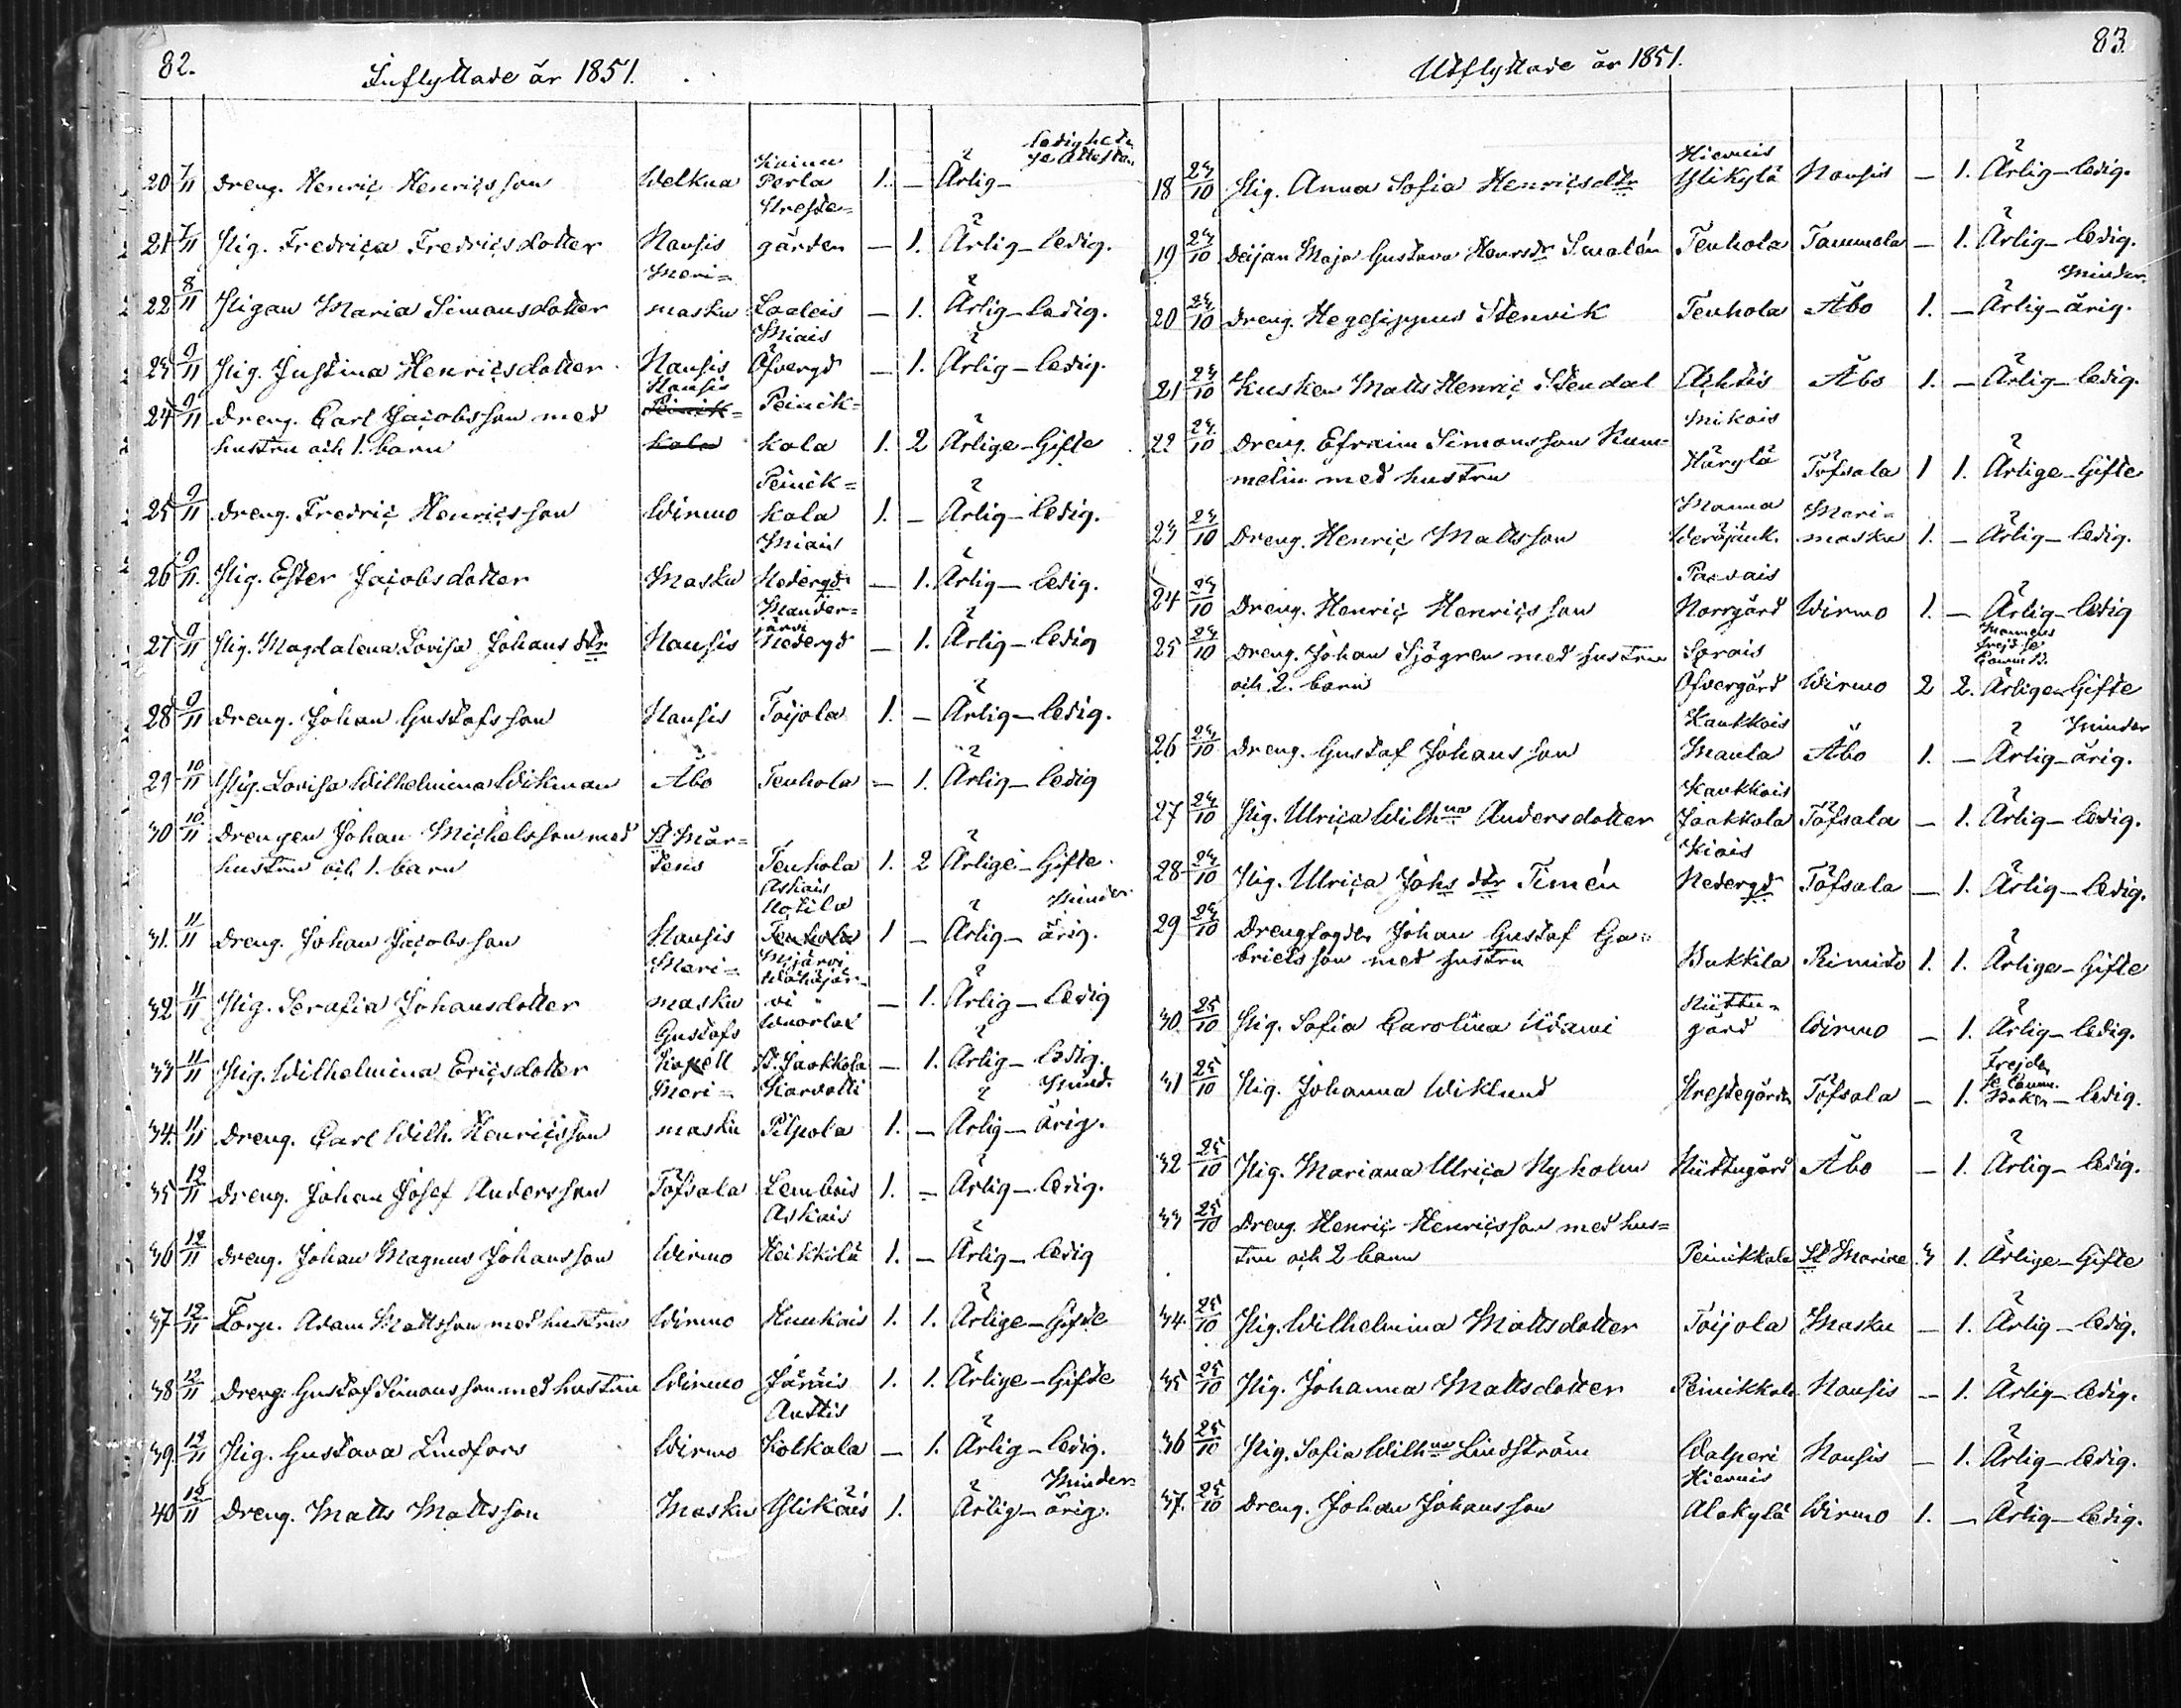 82.
Inflyttade år 1851.
20 7/11 Dreng. Henric Henricsson Welkua Perla 1. — Ärlig — ledighets
21 7/11 Pig. Fredrica Fredricsdotter Nousis Prestegården — 1. Ärlig — ledig.
22 8/11 Pigan Maria Simonsdotter Merimasku Laaleis — 1. Ärlig — ledig.
23 9/11 Pig. Justina Henricsdotter Nousis Miais Öfvergd — 1. Ärlig — ledig.
24 9/11 Dreng. Carl Jacobsson med Nousis Peinik=
hustru och 1. barn kola 1. 2 Ärlige — Gifte
25 9/11 Dreng. Fredric Henricsson Wirmo Peinikkola 1. — Ärlig — ledig.
26 9/11 Pig. Ester Jacobsdotter Masku Miais Nedergd — 1. Ärlig — ledig.
27 9/11 Pig. Magdalena Lovisa Johansdtr Nousis Manderjärvi Nedergd — 1. Ärlig — ledig
28 9/11 Dreng. Johan Gustafsson Nousis Toijola 1. — Ärlig — ledig.
29 10/11 Pig. Lovisa Wilhelmina Wikman Åbo Tenhola — 1. Ärlig — ledig
30 10/11 Drengen Johan Michelsson med St Mår=
hustru och 1. barn tens Tenhola 1. 2 Ärlige — Gifte.
31 11/11 Dreng. Johan Jacobsson Nousis Askais Tenhola 1 — Ärlig — Minderårig.
32 11/11 Pig. Serafia Johansdotter Merimasku — 1. Ärlig — ledig
33 11/11 Pig. Wilhelmina Ericsdotter Gustafs Kapell St. Jaakkola — 1. Ärlig — ledig.
34 11/11 Dreng. Carl Wilh. Henricsson Merimasku Karvatti Pilpola 1. — Ärlig — Mind. årig.
35 12/11 Dreng. Johan Josef Andersson Töfsala Lembois 1. — Ärlig — ledig.
36 12/11 Dreng. Johan Magnus Johansson Wirmo Askais Heikkilä 1. — Ärlig — ledig
37 12/11 Torp. Adam Mattsson med hustru Wirmo Hunkais 1. 1. Ärlige — Gifte
38 12/11 Dreng. Gustaf Simonsson med hustru Wirmo Järäis 1. 1. Ärlige — Gifte
39 12/11 Pig. Gustava Lindfors Wirmo Auttis Kolkala — 1. Ärlig — ledig.
40 12/11 Dreng. Matts Mattsson Masku Ylikäis 1. Ärlig — Minderårig.
83.
Utflyttade år 1851.
18 24/10 Pig. Anna Sofia Henricsdtr Hiervis Ylikylä Nousis — 1. Ärlig — ledig.
19 24/10 Deijan Maja Gustava Henrsdr Smalén Tenhola Tammela — 1. Ärlig — ledig.
20 24/10 Dreng. Hegesippus Stenvik Tenhola Åbo 1. — Ärlig — Minderårig.
21 24/10 Kusken Matts Henric Stendal Ahtis Åbo 1. — Ärlig — ledig.
22 24/10 Dreng. Efraim Simonsson Rum= Mikois
melin med hustru Härylä Töfsala 1 1. Ärlige — Gifte
23 24/10 Dreng. Henric Mattsson Manna Merimasku 1. — Ärlig — ledig.
24 24/10 Dreng. Henric Henricsson Parsais Norrgård Wirmo 1. — Ärlig — ledig
25 24/10 Dreng. Johan Sjögren med hustru Sorais
och 2. barn Öfvergård Wirmo 2 2. Ärlige — Gifte
26 24/10 Dreng. Gustaf Johansson Kaukkois Manla Åbo 1. — Ärlig — Minderårig.
27 24/10 Pig. Ulrica Wilhna Andersdotter Kaukkois Jaakkola Töfsala — 1. Ärlig — ledig.
28 24/10 Pig. Ulrica Johs dtr Timén Kiais Nedergd Töfsala — 1. Ärlig — ledig.
29 24/10 Drengfogden Johan Gustaf Ga=
brielsson med hustru Pukkila Rimito 1. 1. Ärlige — Gifte
30. 25/10 Pig. Sofia Carolina Udami Hüttugård Wirmo — 1. Ärlig — ledig.
31 25/10 Pig. Johanna Wiklund Prestegården Töfsala — 1. Frejden se Comm. Boken — ledig.
32 25/10 Pig. Mariana Ulrica Nyholm Hüttugård Åbo — 1. Ärlig — ledig.
33 25/10 Dreng. Henric Henricsson med hus=
tru och 2 barn Peinikkala St Mariae 3 1. Ärlige — Gifte
34. 25/10 Pig. Wilhelmina Mattsdotter Toijola Masku — 1. Ärlig — ledig.
35 25/10 Pig. Johanna Mattsdotter Peinikkala Nousis — 1. Ärlig — ledig.
36 25/10 Pig. Sofia Wilhna Lindström Walperi Nousis — 1. Ärlig — ledig.
37. 25/10 Dreng. Johan Johansson Hiervis Alakylä Wirmo 1. — Ärlig — ledig.